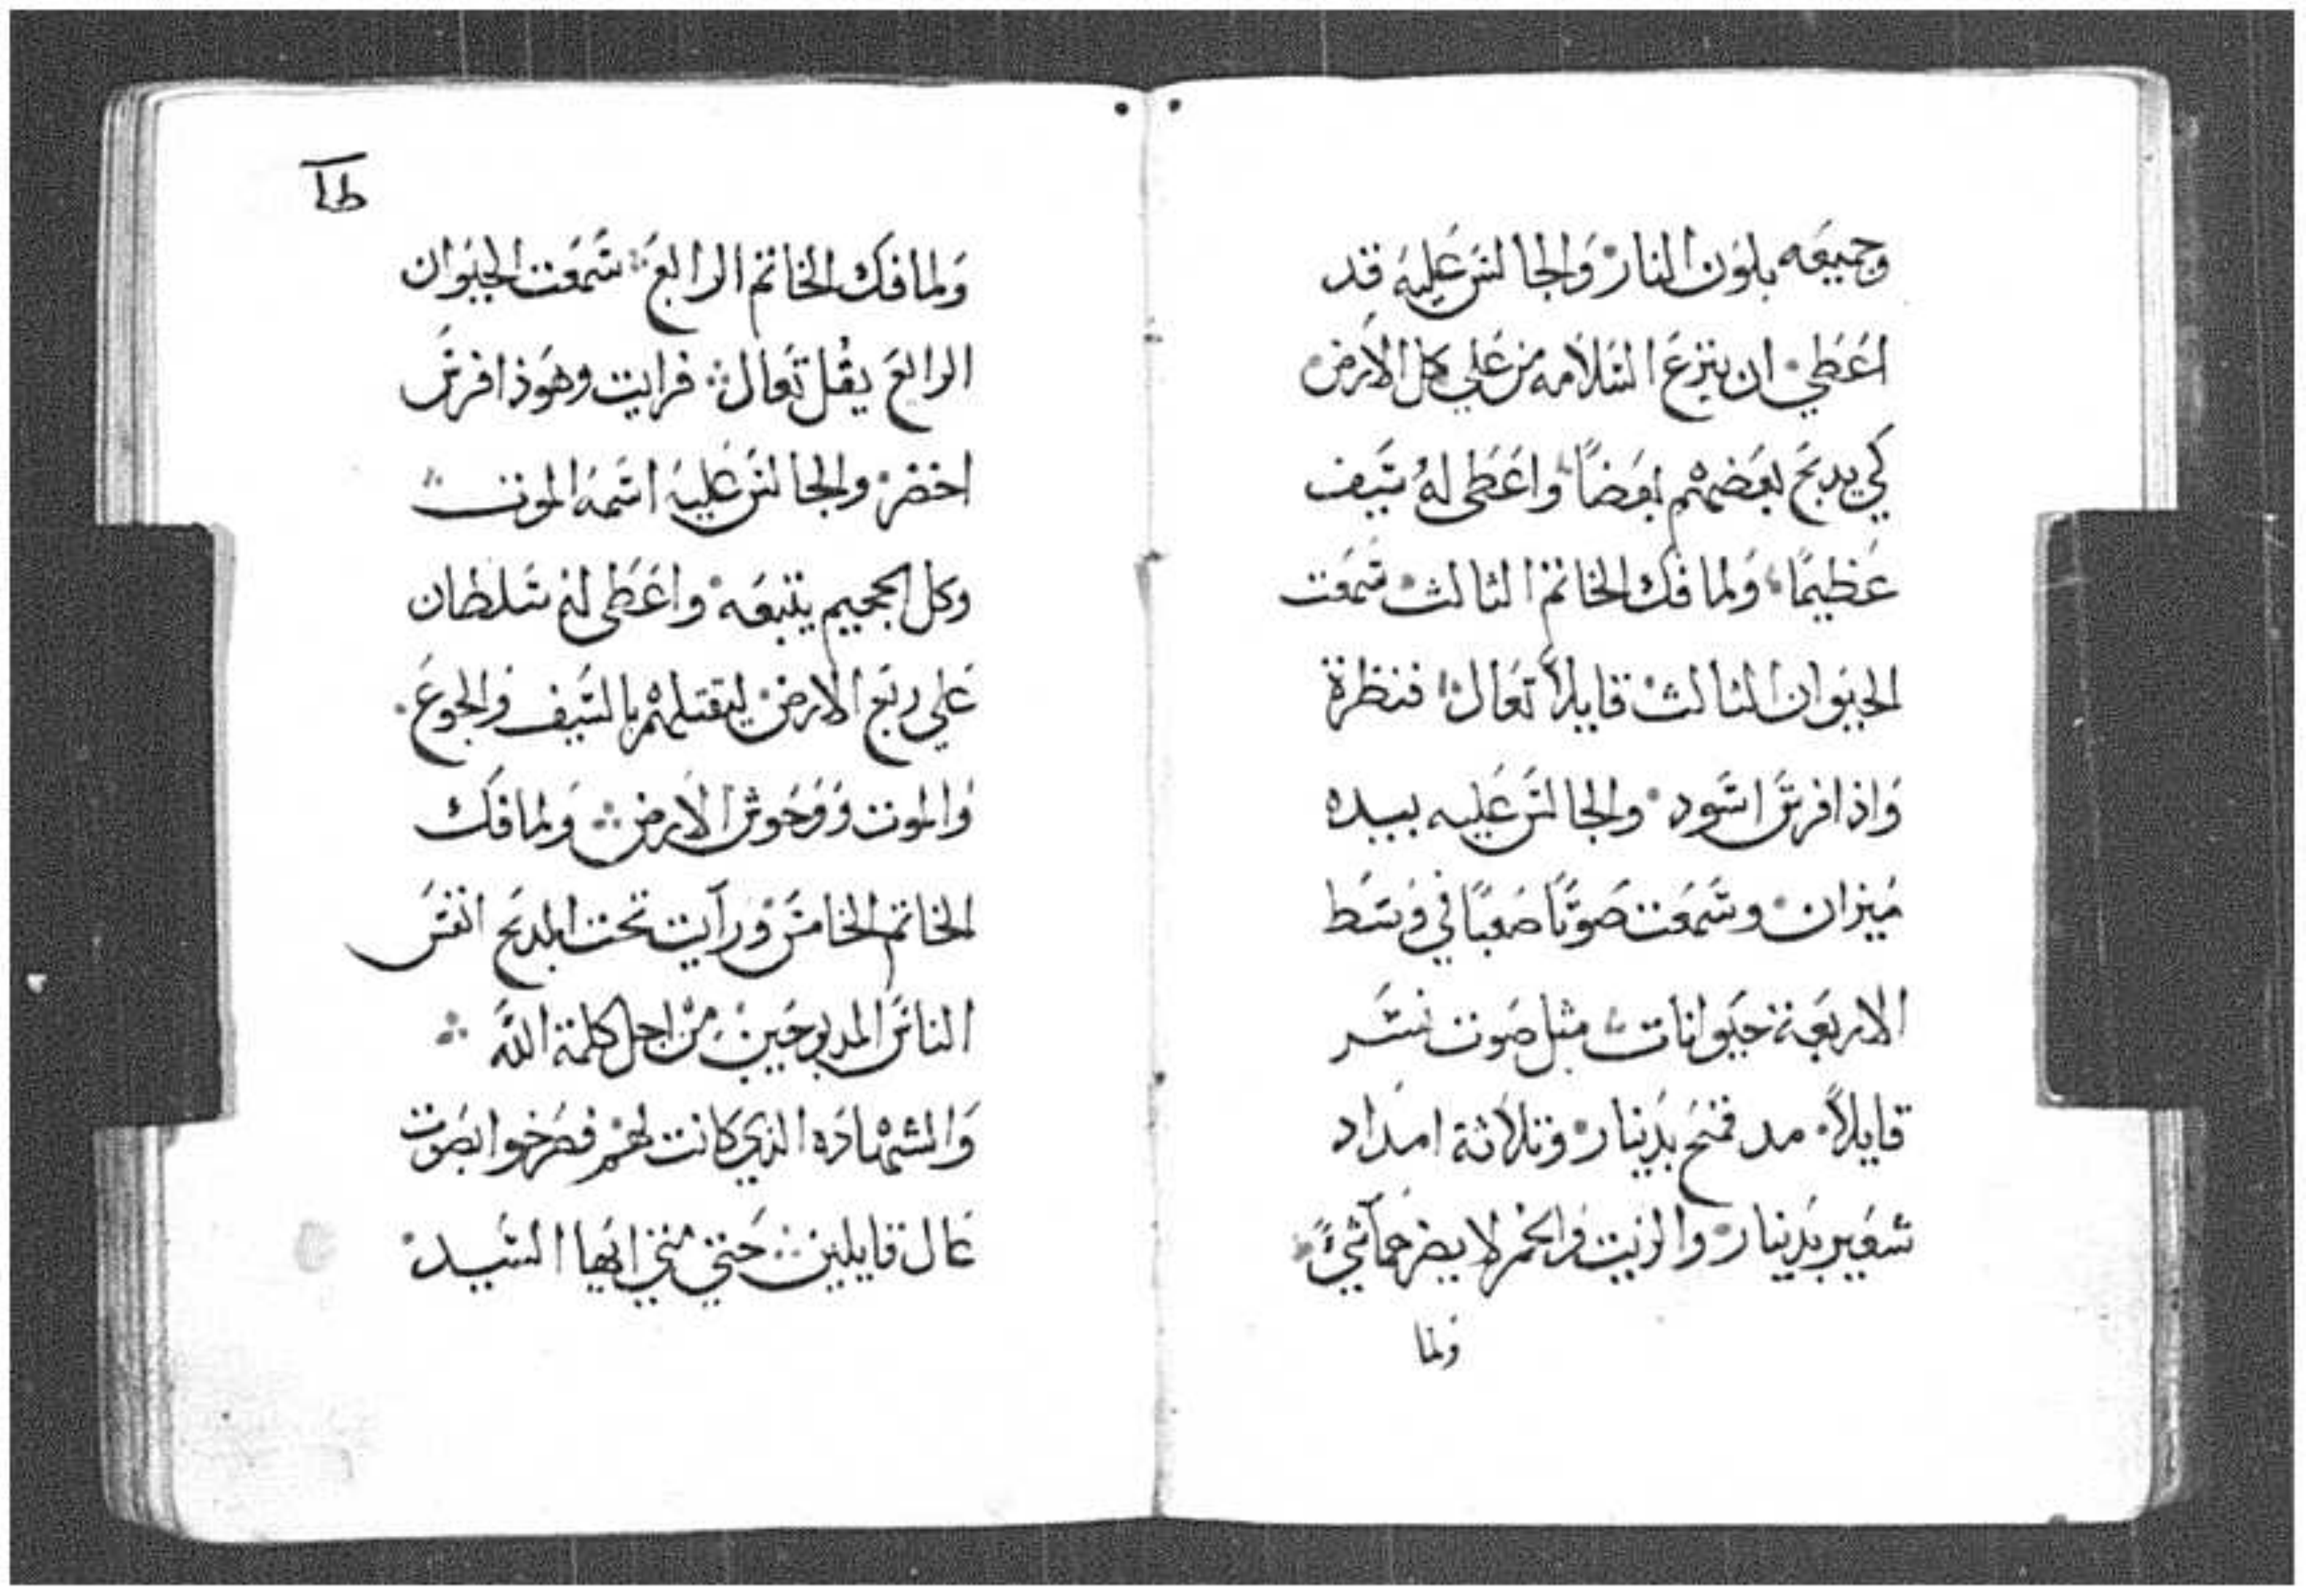 وجميعه بلون النار والجالس عليه قد
اعطي ان ينزع السلامه من علي كل الارض
كي يدبح بعضهم بعضاً واعطى له سيف
عظيماً ولما فك الخاتم الثالث سمعت
الحيوان الثالث قايلاً تعال فنظرة
واذا فرس اسود والجالس عليه بيده
ميزان وسمعت صوتاً صعباً في وسط
الاربعة حيوانات مثل صوت نسر
قايلاً مد قمح بدينار وثلاثة امداد
شعير بدينار والزيت والخمر لا يضرهما شيء
ولما
ولما فك الخاتم الرابع سمعت الحيوان
الرابع يقل تعال فرايت وهوذا فرس
اخضر والجالس عليه اسمه الموت
وكل الجحيم يتبعه واعطى له سلطان
علي ربع الارض ليقتلهم بالسيف والجوع
والموت ووحوش الارض ولما فك
الخاتم الخامس ورآيت تحت المدبح انفس
الناس المدبوحين من اجل كلمة الله
والشهاده الذي كانت لهم فصرخوا بصوت
عال قايلين حتي متي ايها السيد